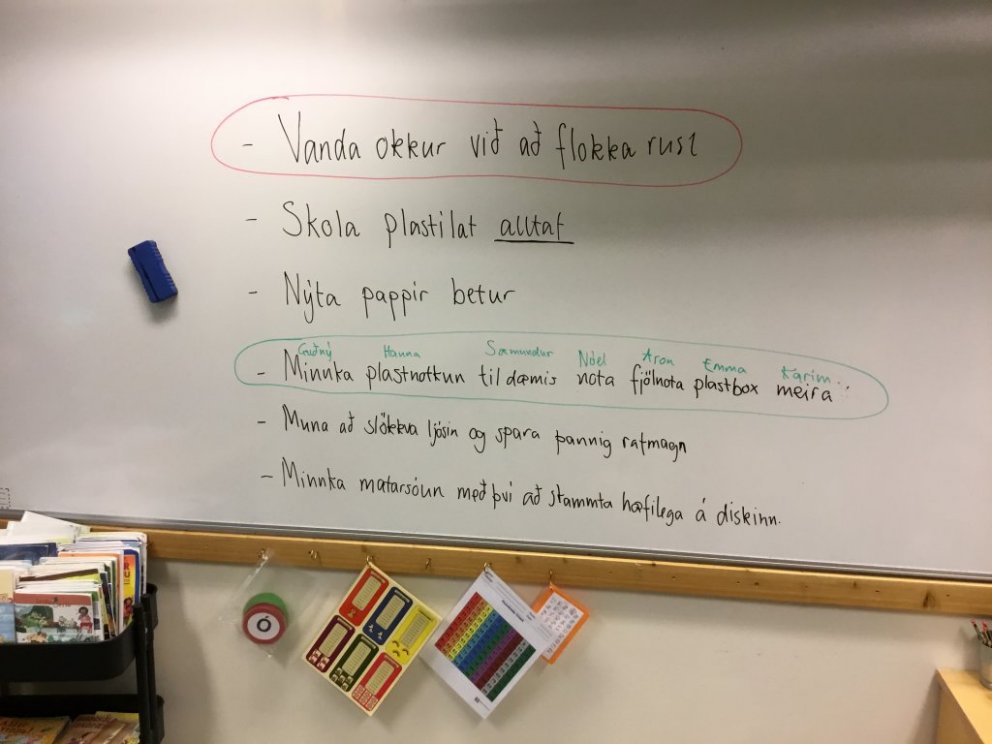 - Vanda okkur við að flokka rusl
- Skola plastílát alltaf
- Nýta pappír betur
Guðný Hanna Sæmundur Nóel Aron Emma Karim
- Minnka plastnotkun til dæmis nota fjölnota plastbox meira
- Muna að slökkva ljósin og spara þannig rafmagn
- Minnka matarsóun með því að skammta hæfilega á diskinn.
Ó